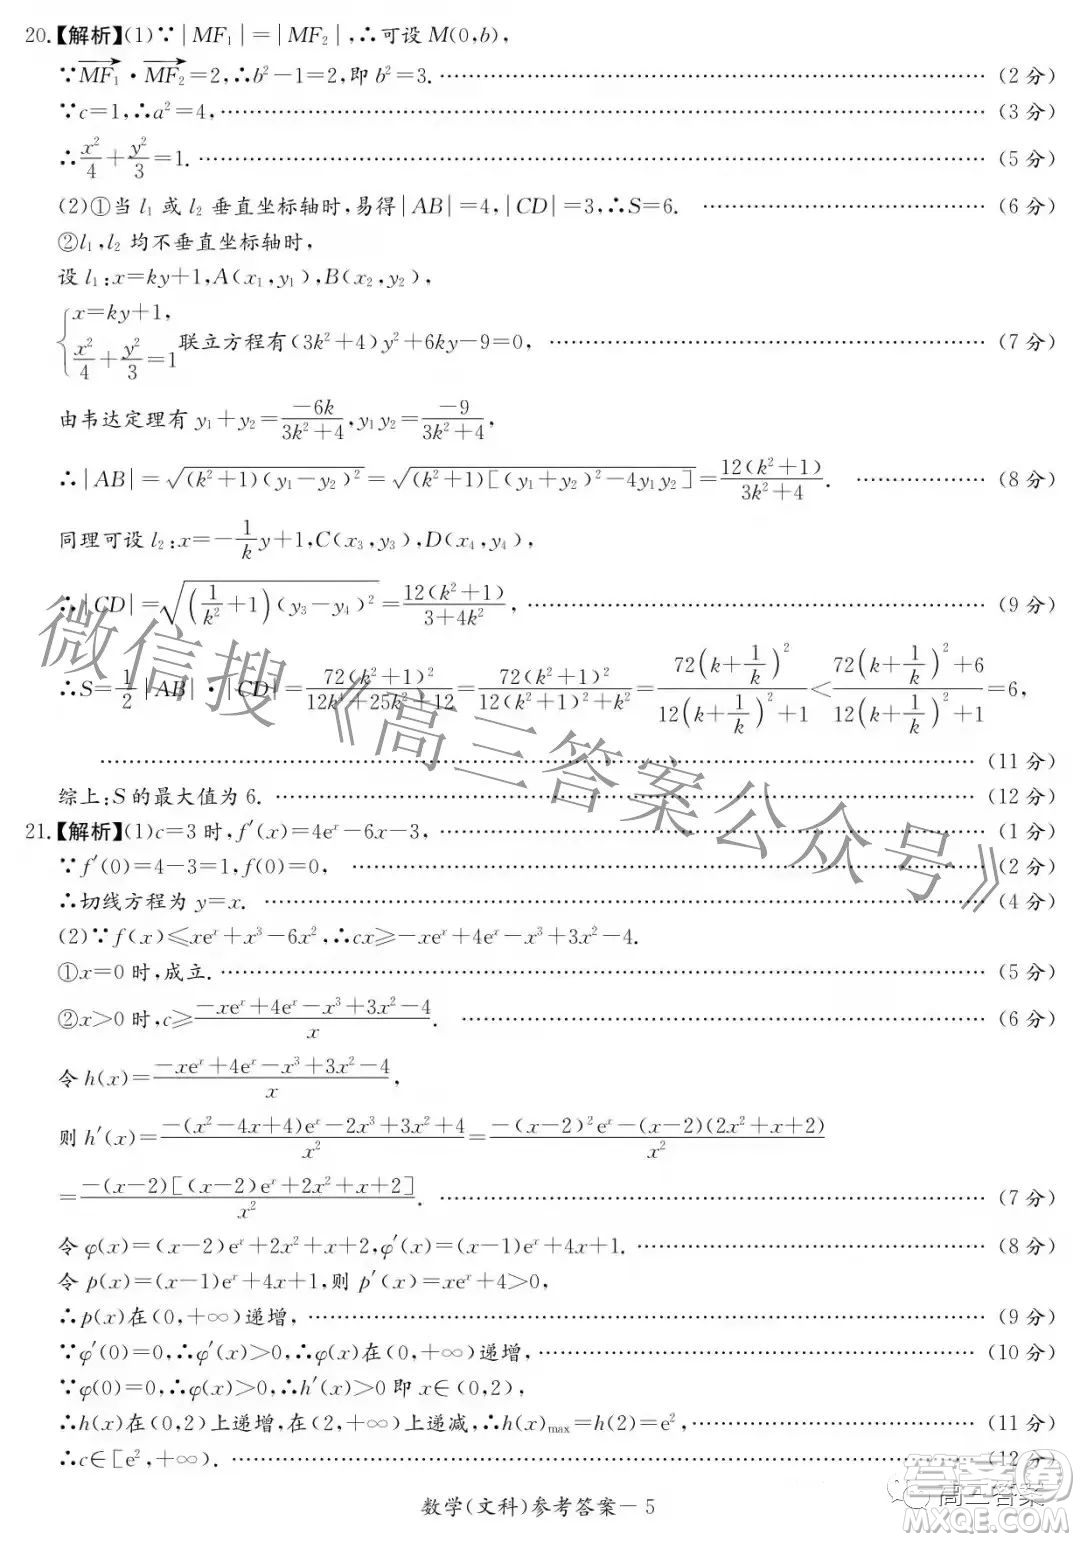 20.【解析】(1)∵|MF₁|=|MF₂|,∴可设 M(0,b),
∵MF₁→·MF₂→=2,∴b²−1=2,即 b²=3. (2分)
∵c=1,∴a²=4, (3分)
∴x²/4+y²/3=1. (5分)
(2)①当 l₁ 或 l₂ 垂直坐标轴时,易得|AB|=4,|CD|=3,∴S=6. (6分)
②l₁,l₂ 均不垂直坐标轴时,
设 l₁:x=ky+1,A(x₁,y₁),B(x₂,y₂),
{x=ky+1, x²/4+y²/3=1 联立方程有(3k²+4)y²+6ky−9=0, (7分)
由韦达定理有 y₁+y₂=−6k/(3k²+4),y₁y₂=−9/(3k²+4),
∴|AB|=√((k²+1)(y₁−y₂)²)=√((k²+1)[(y₁+y₂)²−4y₁y₂])=12(k²+1)/(3k²+4). (8分)
同理可设 l₂:x=−(1/k)y+1,C(x₃,y₃),D(x₄,y₄),
∴|CD|=√((1/k²+1)(y₃−y₄)²)=12(k²+1)/(3+4k²), (9分)
∴S=1/2|AB|·|CD|=72(k²+1)²/(12k⁴+25k²+12)=72(k²+1)²/(12(k²+1)²+k²)=72(k+1/k)²/(12(k+1/k)²+1)<(72(k+1/k)²+6)/(12(k+1/k)²+1)=6,
(11分)
综上:S的最大值为 6. (12分)
21.【解析】(1)c=3时,f′(x)=4eˣ−6x−3, (1分)
∵f′(0)=4−3=1,f(0)=0, (2分)
∴切线方程为 y=x. (4分)
(2)∵f(x)≤xeˣ+x³−6x²,∴cx≥−xeˣ+4eˣ−x³+3x²−4.
①x=0时,成立. (5分)
②x>0时,c≥(−xeˣ+4eˣ−x³+3x²−4)/x. (6分)
令 h(x)=(−xeˣ+4eˣ−x³+3x²−4)/x,
则 h′(x)=(−(x²−4x+4)eˣ−2x³+3x²+4)/x²=(−(x−2)²eˣ−(x−2)(2x²+x+2))/x²
=−(x−2)[(x−2)eˣ+2x²+x+2]/x². (7分)
令 φ(x)=(x−2)eˣ+2x²+x+2,φ′(x)=(x−1)eˣ+4x+1. (8分)
令 p(x)=(x−1)eˣ+4x+1,则 p′(x)=xeˣ+4>0,
∴p(x)在(0,+∞)递增, (9分)
∵φ′(0)=0,∴φ′(x)>0,∴φ(x)在(0,+∞)递增, (10分)
∵φ(0)=0,∴φ(x)>0,∴h′(x)>0即 x∈(0,2),
∴h(x)在(0,2)上递增,在(2,+∞)上递减,∴h(x)max=h(2)=e², (11分)
∴c∈[e²,+∞). (12分)
数学(文科)参考答案−5
微信搜《高三答案公众号》
高三答案
答案圈
MXQE.COM